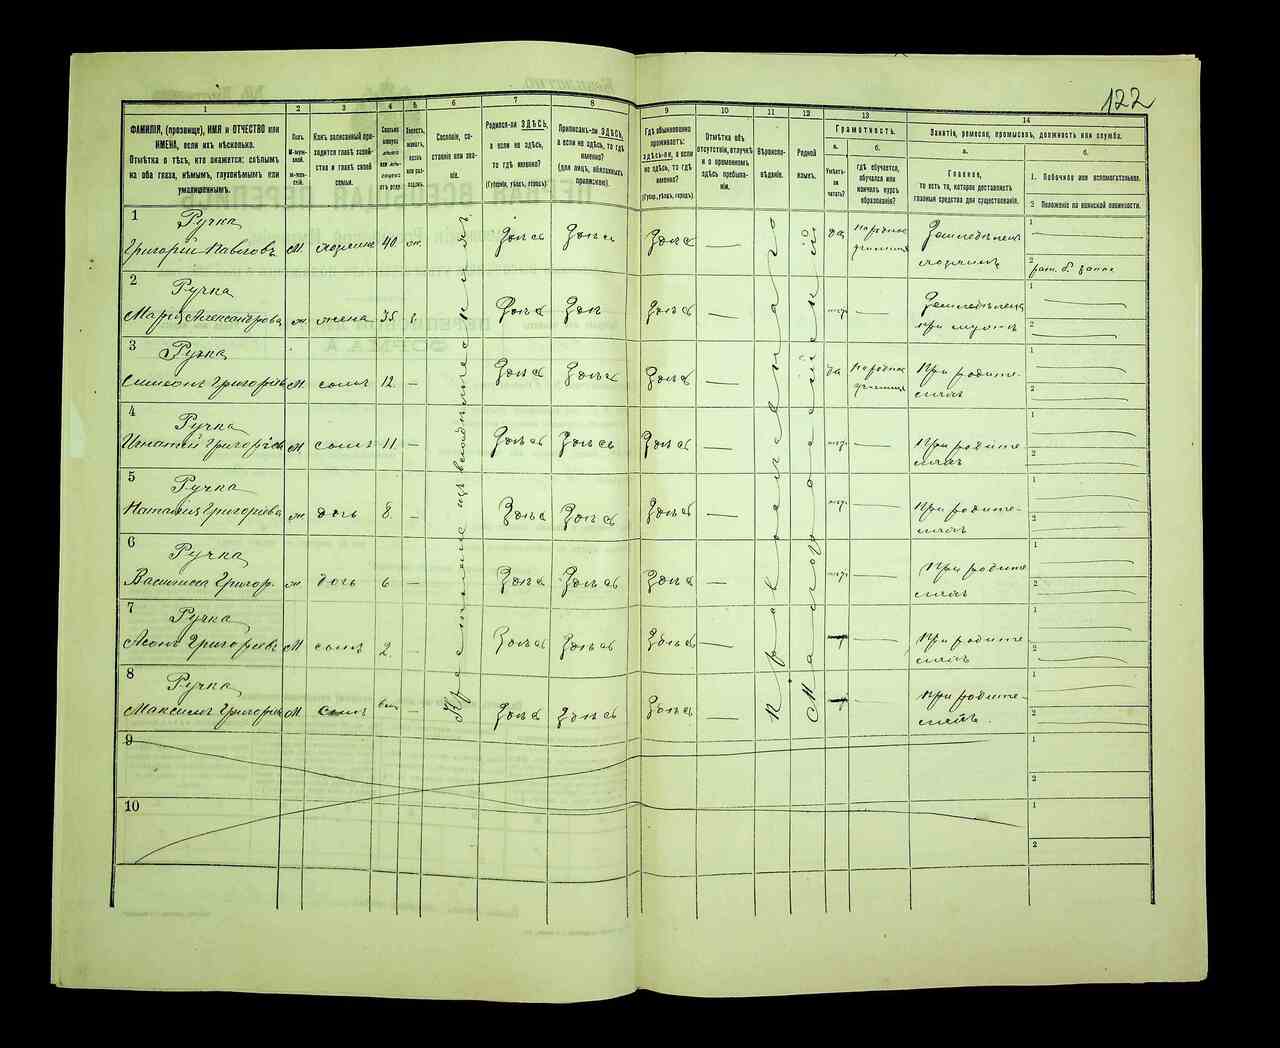 122
1
2
3
4
5
6
7
8
9
10
11
12
13
14
ФАМИЛІЯ, (прозвище), ИМЯ и ОТЧЕСТВО или
ИМЕНА, если ихъ нѣсколько.
Отмѣтка о тѣхъ, кто окажется: слѣпымъ
на оба глаза, нѣмымъ, глухонѣмымъ или
умалишеннымъ.
Полъ.
М-муж-
ской.
Ж-жен-
скій.
Какъ записанный при-
ходится главѣ хозяй-
ства и главѣ своей
семьи.
Сословіе, со-
стояніе или зва-
ніе.
Родился-ли ЗДѢСЬ,
а если не здѣсь,
то гдѣ именно?
(Губернія, уѣздъ, городъ).
Приписанъ-ли ЗДѢСЬ,
а если не здѣсь, то гдѣ
именно?
(для лицъ, обязанныхъ
припискою).
Гдѣ обыкновенно
проживаетъ:
здѣсь-ли, а если
не здѣсь, то гдѣ
именно?
(Губер., уѣздъ, городъ)
Отмѣтка объ
отсутствіи, отлучкѣ
и о временномъ
здѣсь пребыва-
ніи.
Вѣроиспо-
вѣданіе.
Родной
языкъ.
Грамотность.
а.
Умѣетъ-
ли
читать?
б.
гдѣ обучается,
обучался или
кончилъ курсъ
образованія?
Занятіе, ремесло, промыселъ, должность или служба.
а.
Главное,
то есть то, которое доставляетъ
главныя средства для существованія.
б.
1. Побочное или вспомогательное.
2 Положеніе по воинской повинности.
Крестьяне изъ владѣльческихъ
Православнаго
Малороссійскій
1
Ручка
Григорій Павловъ М хозяинъ 40 ж. Здѣсь Здѣсь Здѣсь — да народное училище Земледѣлецъ хозяинъ 1 2
2
Ручка
Марія Александрова ж жена 35 Здѣсь Здѣсь Здѣсь — Земледѣлецъ при мужѣ 1 2
3
Ручка
Симеонъ Григорьевъ М сынъ 12 — Здѣсь Здѣсь Здѣсь — да народное училище При родителяхъ 1 2
4
Ручка
Игнатій Григорьевъ М сынъ 11 — Здѣсь Здѣсь Здѣсь — При родителяхъ 1 2
5
Ручка
Наталія Григорьева ж дочь 8 — Здѣсь Здѣсь Здѣсь При родителяхъ 1 2
6
Ручка
Василиса Григор. ж дочь 6 — Здѣсь Здѣсь Здѣсь — При родителяхъ 1 2
7
Ручка
Леонъ Григорьевъ М сынъ 2 — Здѣсь Здѣсь Здѣсь — При родителяхъ 1 2
8
Ручка
Максимъ Григорьевъ М сынъ — Здѣсь Здѣсь Здѣсь — При родителяхъ 1 2
9
1
2
10
1
2